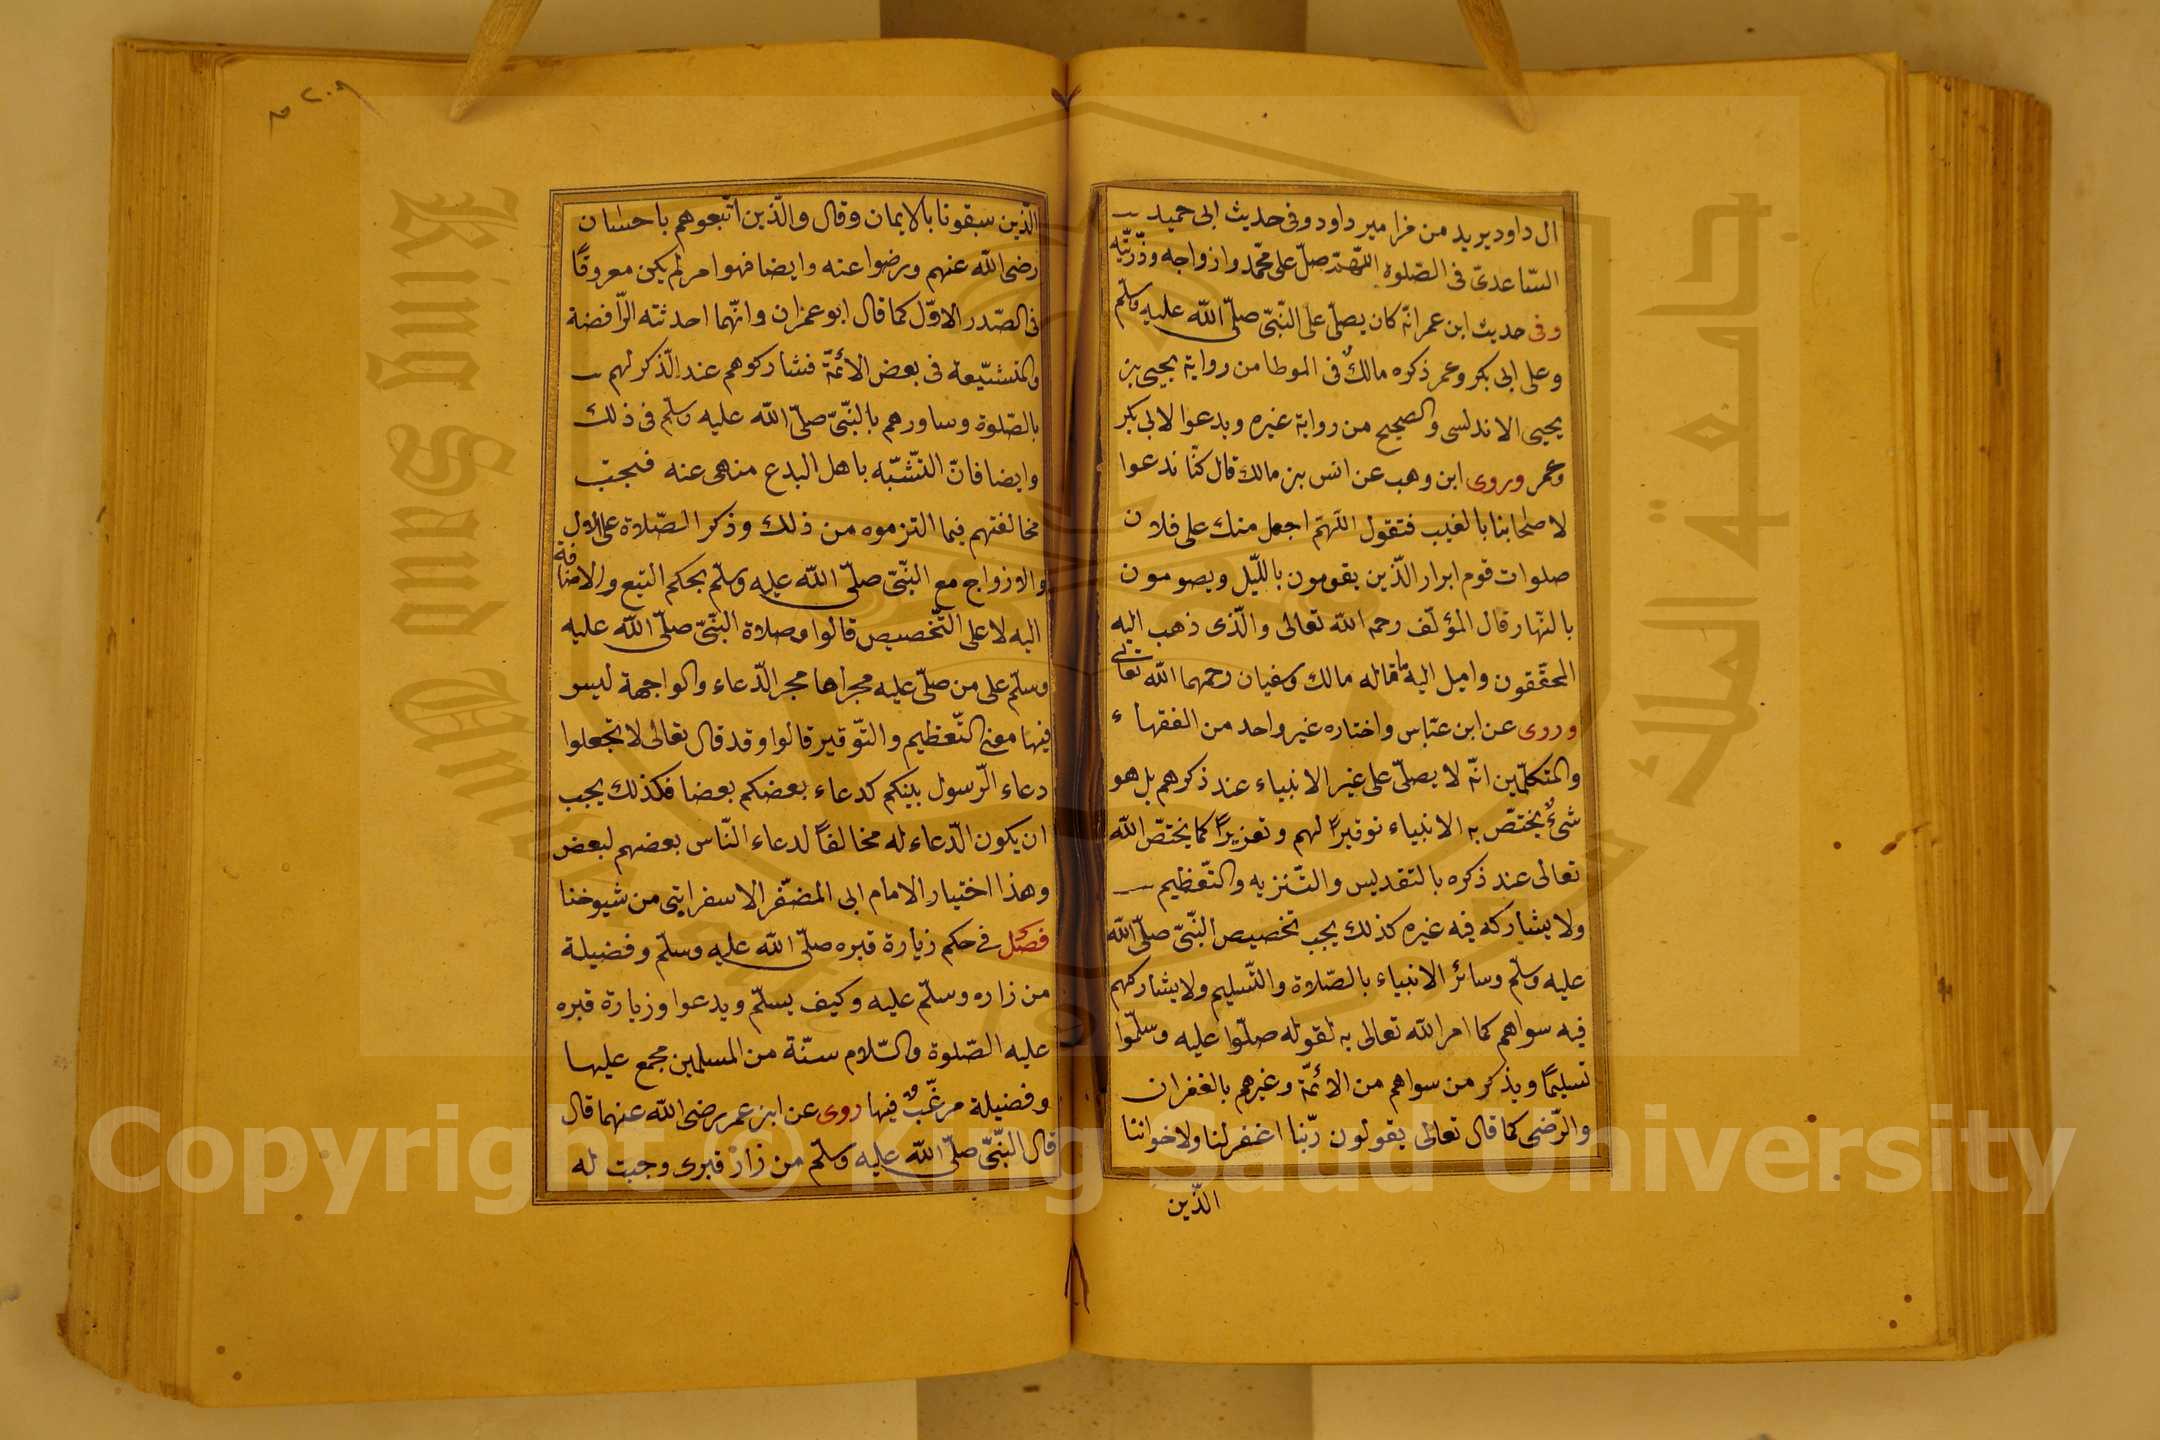 ال داود يريد من مزامير داود وفى حديث ابى حميد
الساعدىّ فى الصّلوة اللّهمّ صلّ على محمّد وازواجه وذرّيّته
وفى حديث ابن عمر انّه كان يصلّى على النّبىّ صلّى اللّه عليه وسلّم
وعلى ابى بكر وعمر ذكره مالكٌ فى الموطا من رواية يحيى بن
يحيى الاندلسى والصحيح من رواية غيره ويدعوا لابى بكر
وعمر وروى ابن وهب عن انس بن مالك قال كنّا ندعوا
لاصحابنا بالغيب فنقول اللّهمّ اجعل منك على فلان
صلوات قوم ابرار الّذين يقومون باللّيل ويصومون
بالنّهار قال المؤلّف رحمه اللّه تعالى والّذى ذهب اليه
المحقّقون واميل اليه ما قاله مالك وسفيان رحمهما اللّه تعالى
وروى عن ابن عبّاس واختاره غير واحد من الفقهاء
والمتكلّمين انّه لا يصلّى على غير الانبياء عند ذكرهم بل هو
شىءٌ يختصّ به الانبياء توقيرًا لهم وتعزيزًا كما يختصّ اللّه
تعالى عند ذكره بالتقديس والتّنزيه والتّعظيم
ولا يشاركه فيه غيره كذلك يجب تخصيص النّبىّ صلّى اللّه
عليه وسلّم وسائر الانبياء بالصّلاة والتّسليم ولا يشاركهم
فيه سواهم كما امر اللّه تعالى به لقوله صلّوا عليه وسلّموا
تسليمًا ويذكر من سواهم من الائمّة وغيرهم بالغفران
والرّضى كما قال تعالى يقولون ربّنا اغفر لنا ولاخواننا
الّذين
٢٠٩
الّذين سبقونا بالايمان وقال والّذين اتّبعوهم باحسان
رضى اللّه عنهم ورضوا عنه وايضا فهو امر لم يكن معروفًا
فى الصّدر الاوّل كما قال ابو عمران وانّما احدثته الرّافضة
والمتشيّعة فى بعض الائمّة فشاركوهم عند الذّكر لهم
بالصّلوة وساورهم بالنّبىّ صلّى اللّه عليه وسلّم فى ذلك
وايضا فانّ التّشبّه باهل البدع منهى عنه فيجب
مخالفتهم فيما التزموه من ذلك وذكر الصّلاة على الال
والازواج مع النّبىّ صلّى اللّه عليه وسلّم بحكم التبع والاضافة
اليه لا على التّخصيص قالوا وصلاة النّبىّ صلّى اللّه عليه
وسلّم على من صلّى عليه مجراها مجر الدّعاء والمواجهة ليس
فيها معنى التّعظيم والتّوقير قالوا وقد قال تعالى لا تجعلوا
دعاء الرّسول بينكم كدعاء بعضكم بعضا فكذلك يجب
ان يكون الدّعاء له مخالفًا لدعاء النّاس بعضهم لبعض
وهذا اختيار الامام ابى المضفّر الاسفراينى من شيوخنا
فصل فى حكم زيارة قبره صلّى اللّه عليه وسلّم وفضيلة
من زاره وسلّم عليه وكيف يسلّم ويدعوا وزيارة قبره
عليه الصّلوة والسّلام سنّة من المسلمين مجمع عليها
وفضيلة مرغّبٌ فيها روى عن ابن عمر رضى اللّه عنهما قال
قال النّبىّ صلّى اللّه عليه وسلّم من زار قبرى وجبت له
جامعة الملك سعود
King Saud University
Copyright © King Saud University